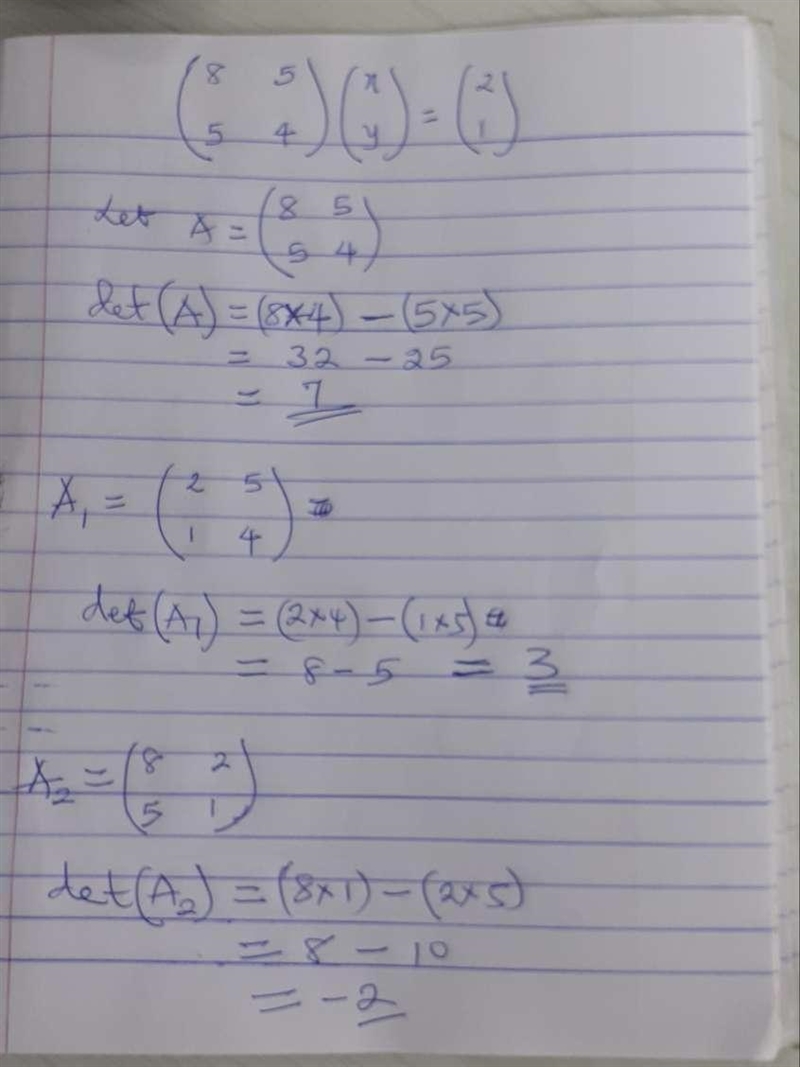 (8 5
5 4) (x
y) = (2
1)
Let A = (8 5
5 4)
det(A) = (8×4) − (5×5)
= 32 − 25
= 7
A₁ = (2 5
1 4)
det(A₁) = (2×4) − (1×5)
= 8 − 5 = 3
A₂ = (8 2
5 1)
det(A₂) = (8×1) − (2×5)
= 8 − 10
= −2